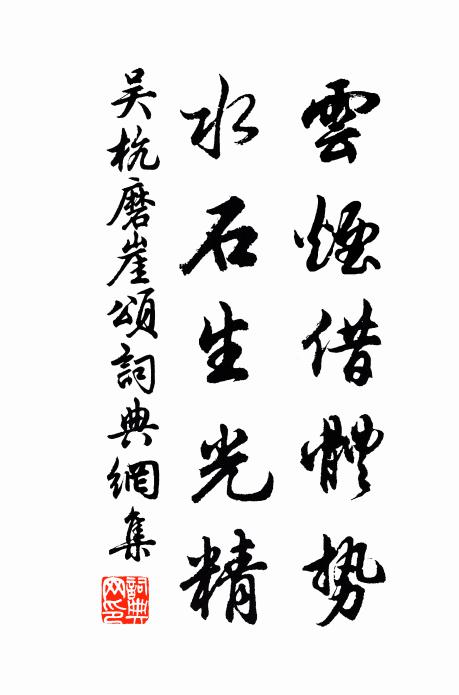 雲煙借體勢
水石生光精
吴杭磨崖頌詞典網集
詞典网印